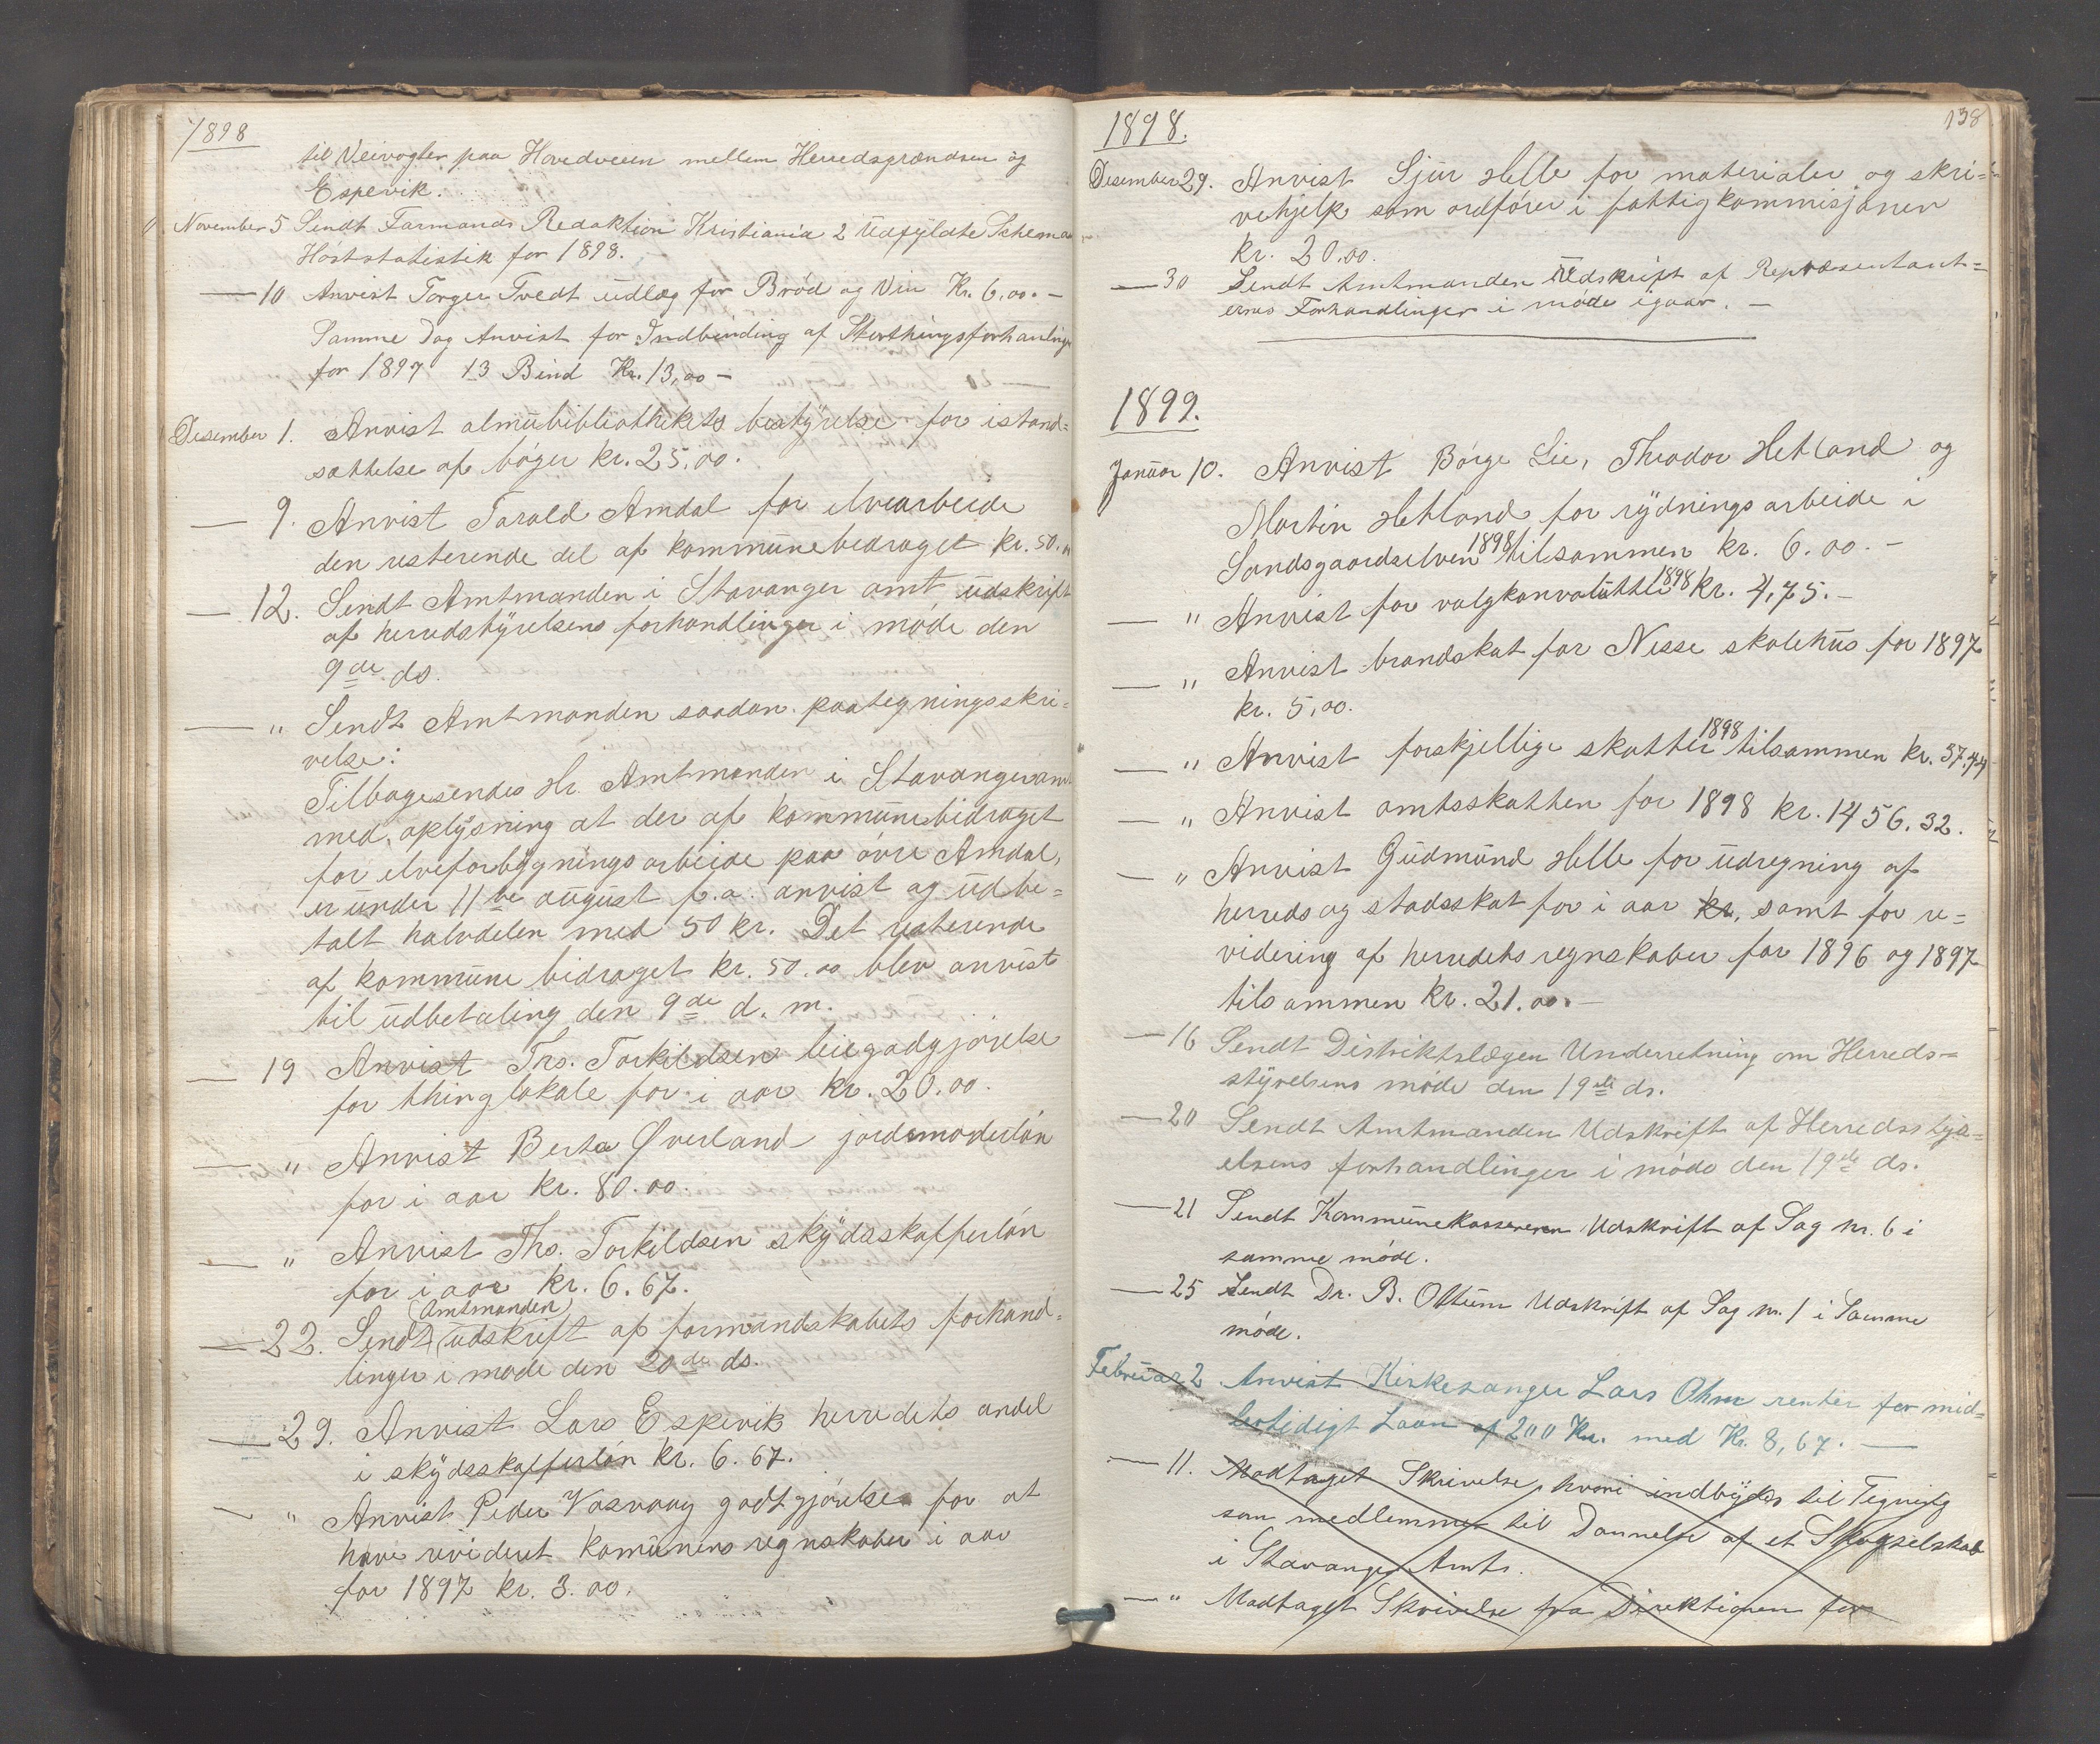 1898
til Veivogter paa Hovedveien mellem Herredsgrændsen og
Espevik.
November 5 Sendt Farmands Redaktion Kristiania 2 Udfyldte Schema
Høststatistik for 1898.
— 10 Anvist Torger Tvedt udlæg for Brød og Vin Kr. 6,00. —
Samme Dag Anvist for Indbinding af Storthingsforhanlinge
for 1897 13 Bind Kr. 13,00 —
Desember 1. Anvist almubibliothekets bestyrelse for istand=
sættelse af bøger kr. 25,00.
— 9. Anvist Tarald Amdal for elvearbeide
den resterende del af kommunebedraget kr. 50.00
— 12. Sendt Amtmanden i Stavanger amt udskrift
af herredstyrelsens forhandlinger i møde den
9de ds.
— " Sendt Amtmanden saadan paategningsskri=
velse:
Tilbagesendes Hr. Amtmanden i Stavanger amt
med oplysning at der af kommunebidraget
for elveforbygningsarbeide paa øvre Amdal,
er under 11te august f. a. anvist og udbe=
talt halvdelen med 50 kr. Det resterende
af kommune bidraget kr. 50.00 blev anvist
til udbetaling den 9de d. m.
— 19 Anvist Ths. Torkildsen leiegodgjørelse
for thinglokale for i aar kr. 20.00.
— " Anvist Berta Øverland jordemoderløn
for i aar kr. 80.00.
— " Anvist Ths. Torkildsen skydsskafferløn
for i aar kr. 6.67.
(Amtmanden)
— 22. Sendt udskrift af formandskabets forhand=
linger i møde den 20de ds.
— 29. Anvist Lars Espevik herredets andel
i skydsskafferløn kr. 6.67.
— " Anvist Peder Vasvaag godtgjørelse for at
have revideret komunens regnskaber i aar
for 1897 kr. 3.00.
138
1898.
Desember 29. Anvist Sjur Helle for materialer og skri=
vehjelp som ordfører i fattigkommisjonen
kr. 20.00.
— 30 Sendt Amtmanden Udskrift af Repræsentant=
ernes Forhandlinger i møde igaar. —
1899.
Januar 10. Anvist Børge Lie, Theodor Hetland og
Martin Hetland for rydningsarbeide i
Sandsgaardselven 1898 tilsammen kr. 6.00. —
— " Anvist for valgkonvolutter 1898 kr. 4,75. —
— " Anvist brandskat for Nesse skolehus for 1897
kr. 5,00.
— " Anvist forskjellige skatter 1898 tilsammen kr. 37,44
— " Anvist amtsskatten for 1898 kr. 1456.32.
— " Anvist Gudmund Helle for udregning af
herreds og stadsskat for i aar kr. samt for re=
videring af herredets regnskaber for 1896 og 1897
tilsammen kr. 21.00. —
— 16 Sendt Distriktslægen Underretning om Herreds=
styrelsens møde den 19de ds.
— 20 Sendt Amtmanden Udskrift af Herredsstyr=
elsens forhandlinger i møde den 19de ds.
— 21 Sendt Kommunekassereren Udskrift af Sag nr. 6 i
samme møde.
— 25 Sendt Dr. B. Ottum Udskrift af Sag nr. 1 i Samme
møde.
Februar 2 Anvist Kirkesanger Lars Ohm renter for mid=
lertidigt Laan af 200 Kr. med Kr. 8,67. —
— 11. Modtaget Skrivelse, hvori indbydes til Tegning
som medlemmer til Dannelse af et Skogselskab
i Stavanger Amts.
— " Modtaget Skrivelse fra Direktionen for